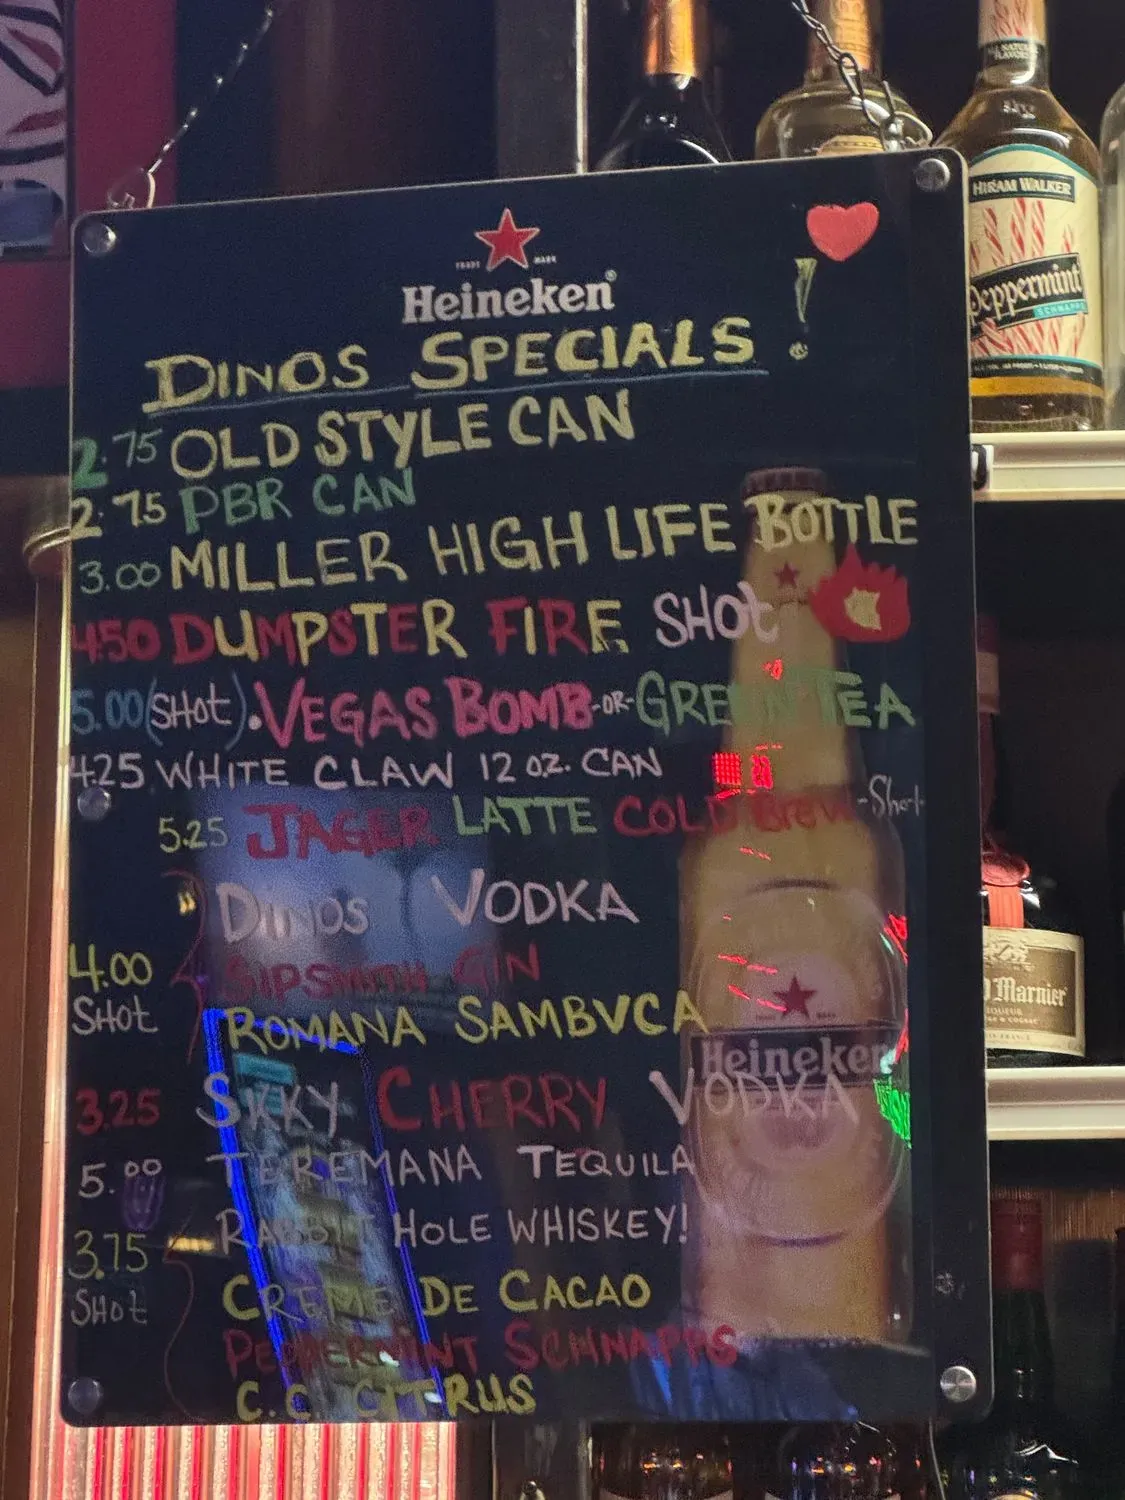 TRADE MARK
Heineken®
DINOS SPECIALS!
2.75 OLD STYLE CAN
2.75 PBR CAN
3.00 MILLER HIGH LIFE BOTTLE
4.50 DUMPSTER FIRE SHOt
5.00 (SHOt). VEGAS BOMB -OR- GREEN TEA
4.25 WHITE CLAW 12 OZ. CAN
5.25 JAGER LATTE COLD BREW -Shot-
DINOS VODKA
4.00 SHOt
SIPSMITH GIN
ROMANA SAMBVCA
3.25 SKKY CHERRY VODKA
5.00 TEREMANA TEQUILA
RABBIT HOLE WHISKEY!
3.75 SHOt
CREME DE CACAO
PEPPERMINT SCHNAPPS
C.C. CITRUS
Heineken
HIRAM WALKER
Peppermint
SCHNAPPS
Marnier
LIQUEUR